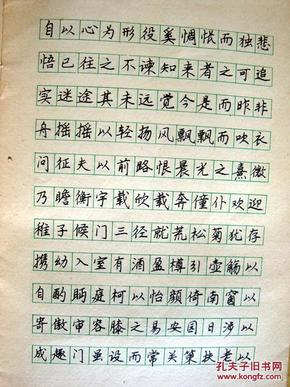 自以心为形役奚惆怅而独悲
悟已往之不谏知来者之可追
实迷途其未远觉今是而昨非
舟摇摇以轻扬风飘飘而吹衣
问征夫以前路恨晨光之熹微
乃瞻衡宇载欣载奔僮仆欢迎
稚子候门三径就荒松菊犹存
携幼入室有酒盈樽引壶觞以
自酌眄庭柯以怡颜倚南窗以
寄傲审容膝之易安园日涉以
成趣门虽设而常关策扶老以
孔夫子旧书网